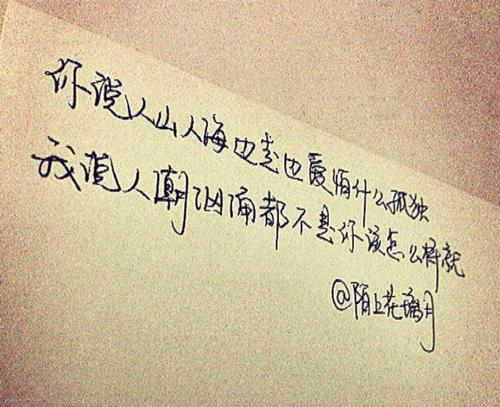 你说人山人海边走边爱怕什么孤独
我说人潮汹涌都不是你该怎么将就
@陌上花月